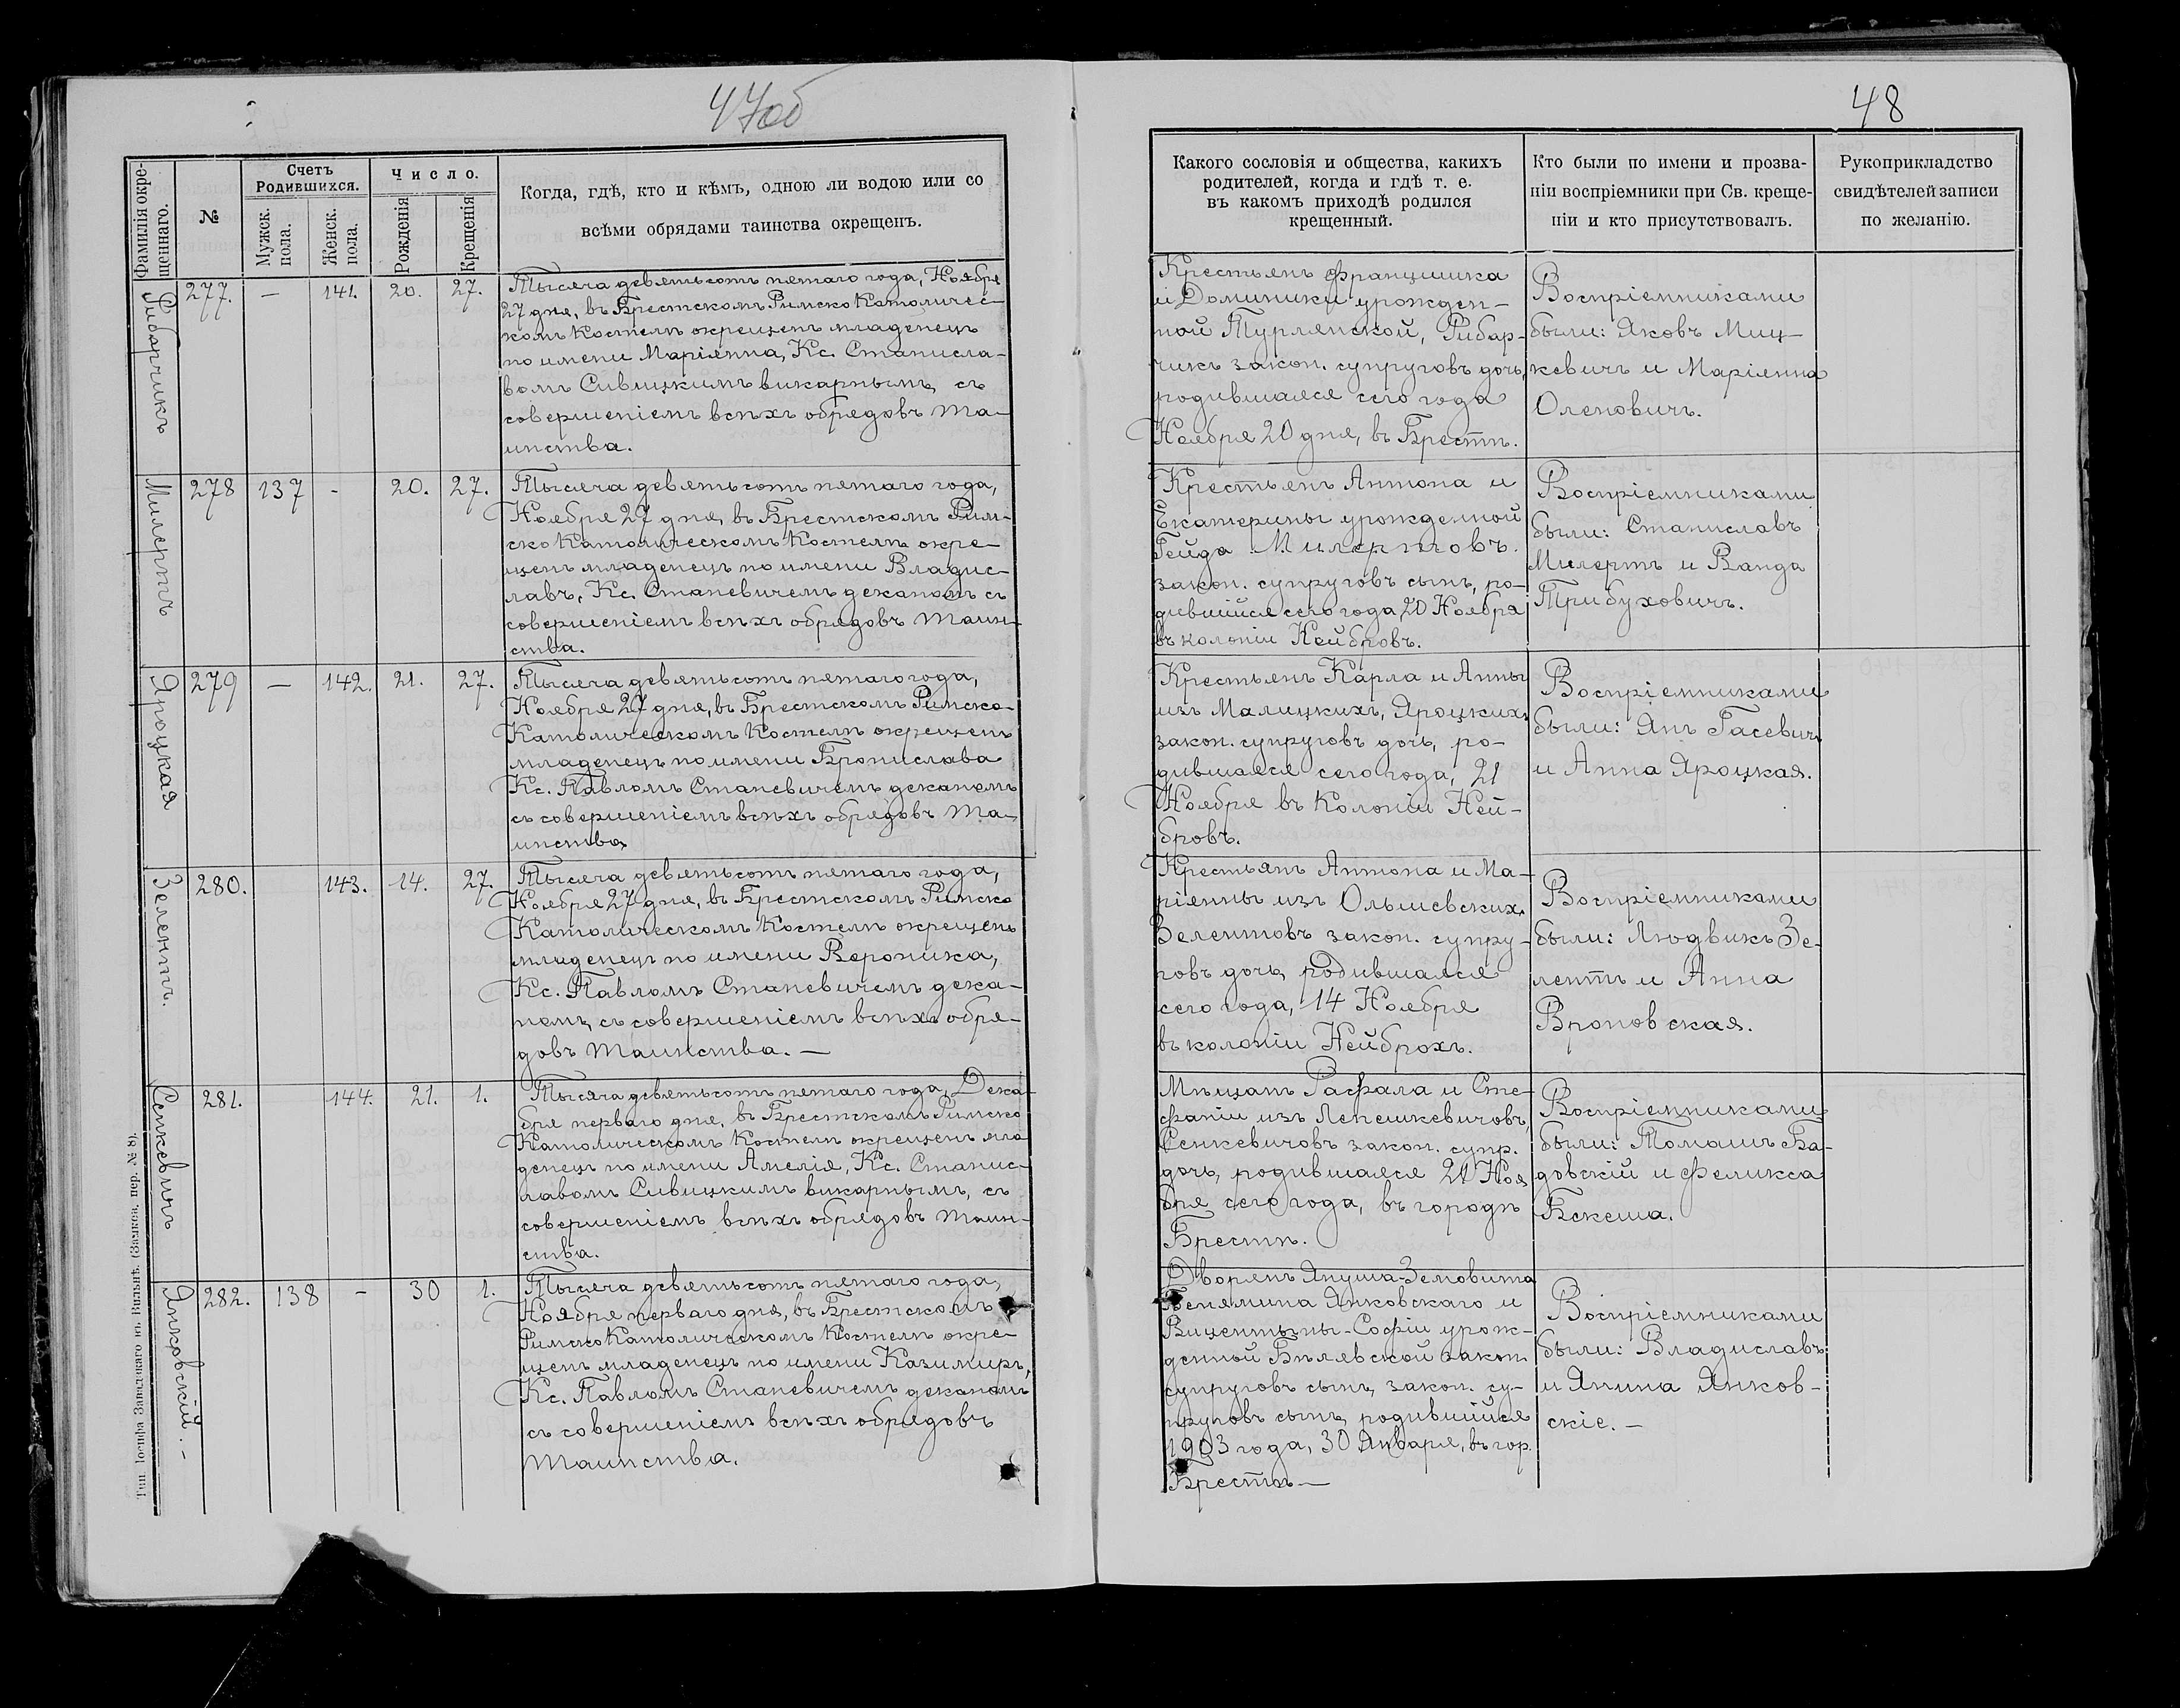 47об
Фамилія окре-
щеннаго.
№
Счетъ
Родившихся.
Мужск.
пола.
Женск.
пола.
Число.
Рожденія
Крещенія
Когда, гдѣ, кто и кѣмъ, одною ли водою или со
всѣми обрядами таинства окрещенъ.
Рибарчикъ
277.
—
141.
20.
27.
Тысяча девятьсотъ пятаго года, Ноября
27 дня, въ Брестскомъ Римско Католичес-
комъ Костелѣ окрещенъ младенецъ
по имени Маріянна, Кс. Станисла-
вомъ Сивицкимъ викарнымъ, съ
совершеніемъ всѣхъ обрядовъ та-
инства.
Милертъ
278
137
-
20.
27.
Тысяча девятьсотъ пятаго года,
Ноября 27 дня, въ Брестскомъ Рим-
ско Католическомъ Костелѣ окре-
щенъ младенецъ по имени Владис-
лавъ, Кс. Станевичемъ деканомъ съ
совершеніемъ всѣхъ обрядовъ таин-
ства.
Яроцкая
279
—
142.
21.
27.
Тысяча девятьсотъ пятаго года,
Ноября 27 дня, въ Брестскомъ Римско-
Католическомъ Костелѣ окрещенъ
младенецъ по имени Бронислава
Кс. Павломъ Станевичемъ деканомъ
съ совершеніемъ всѣхъ обрядовъ та-
инства
Зелентъ.
280.
143.
14.
27.
Тысяча девятьсотъ пятаго года,
Ноября 27 дня, въ Брестскомъ Римско
Католическомъ Костелѣ окрещенъ
младенецъ по имени Вероника,
Кс. Павломъ Станевичемъ дека-
номъ, съ совершеніемъ всѣхъ обря-
довъ таинства. —
Сенкевичъ
281.
144.
21.
1.
Тысяча девятьсотъ пятаго года, Дека-
бря перваго дня, въ Брестскомъ Римско
Католическомъ Костелѣ окрещенъ мла
денецъ по имени Амелія, Кс. Станис-
лавомъ Сивицкимъ викарнымъ, съ
совершеніемъ всѣхъ обрядовъ таин-
ства.
Янковскій. –
282.
138
-
30
1.
Тысяча девятьсотъ пятаго года,
Ноября перваго дня, въ Брестскомъ
Римско Католическомъ Костелѣ окре-
щенъ младенецъ по имени Казимиръ,
Кс. Павломъ Станевичемъ деканомъ
съ совершеніемъ всѣхъ обрядовъ
таинства.
Тип. Іосифа Завадзкаго въ Вильнѣ. (Замкова, пер. № 8).
48
Какого сословія и общества, какихъ
родителей, когда и гдѣ т. е.
въ какомъ приходѣ родился
крещенный.
Кто были по имени и прозва-
ніи воспріемники при Св. креще-
ніи и кто присутствовалъ.
Рукоприкладство
свидѣтелей записи
по желанію.
Крестьянъ Францишка
и Доминики урожден-
ной Турлянской, Рибар-
чикъ закон. супруговъ дочь,
родившаяся сего года
Ноября 20 дня, въ Брестѣ.
Воспріемниками
были: Яковъ Миц-
кевичъ и Маріянна
Оленовичъ.
Крестьянъ Антона и
Екатерины урожденной
Гейда Милертовъ.
закон. супруговъ сынъ, ро-
дившійся сего года, 20 Ноября
въ колоніи Нейбровъ.
Воспріемниками
были: Станиславъ
Милертъ и Ванда
Трибуховичъ.
Крестьянъ Карла и Анны
изъ Малицкихъ, Яроцкихъ
закон. супруговъ дочь, ро-
дившаяся сего года, 21
Ноября въ Колоніи Ней-
бровъ.
Воспріемниками
были: Янъ Гасевичъ
и Анна Яроцкая.
Крестьянъ Антона и Ма-
ріянны изъ Ольшевскихъ
Зелентовъ закон. супру-
говъ дочь, родившаяся
сего года, 14 Ноября
въ колоніи Нейброхъ.
Воспріемниками
были: Людвикъ Зе-
лентъ и Анна
Вроновская.
Мѣщанъ Рафала и Сте-
фаніи изъ Лепешкевичовъ,
Сенкевичовъ закон. супр.
дочь, родившаяся 21 Ноя
бря сего года, въ городѣ
Брестѣ.
Воспріемниками
были: Томашъ Ба-
довскій и Феликса
Бекеша.
Дворянъ Януша-Земовита
Бенямина Янковскаго и
Вицентыны-Софіи урож-
денной Бѣлявской закон.
супруговъ сынъ, закон. су-
пруговъ сынъ, родившійся
1903 года, 30 Января, въ гор.
Брестѣ —
Воспріемниками
были: Владиславъ
и Янина Янков-
скіе. —